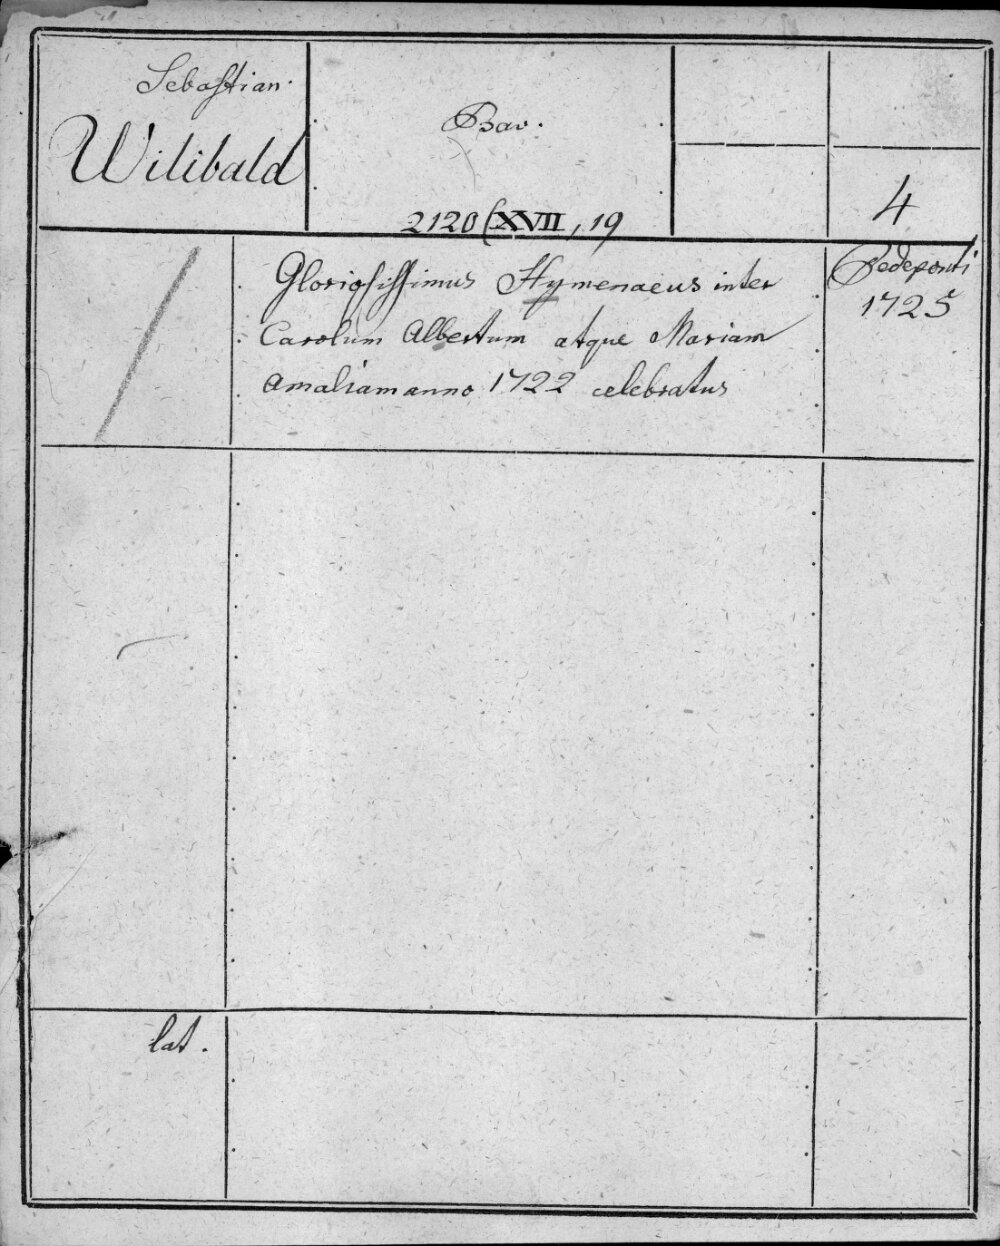 Sebastian.
Wilibald
Bav.
2120 (XVII, 19
4
Gloriosissimus Hymenaeus inter
Carolum Albertum atque Mariam
Amaliam anno 1722 celebratus
Pedeponti
1725
lat.